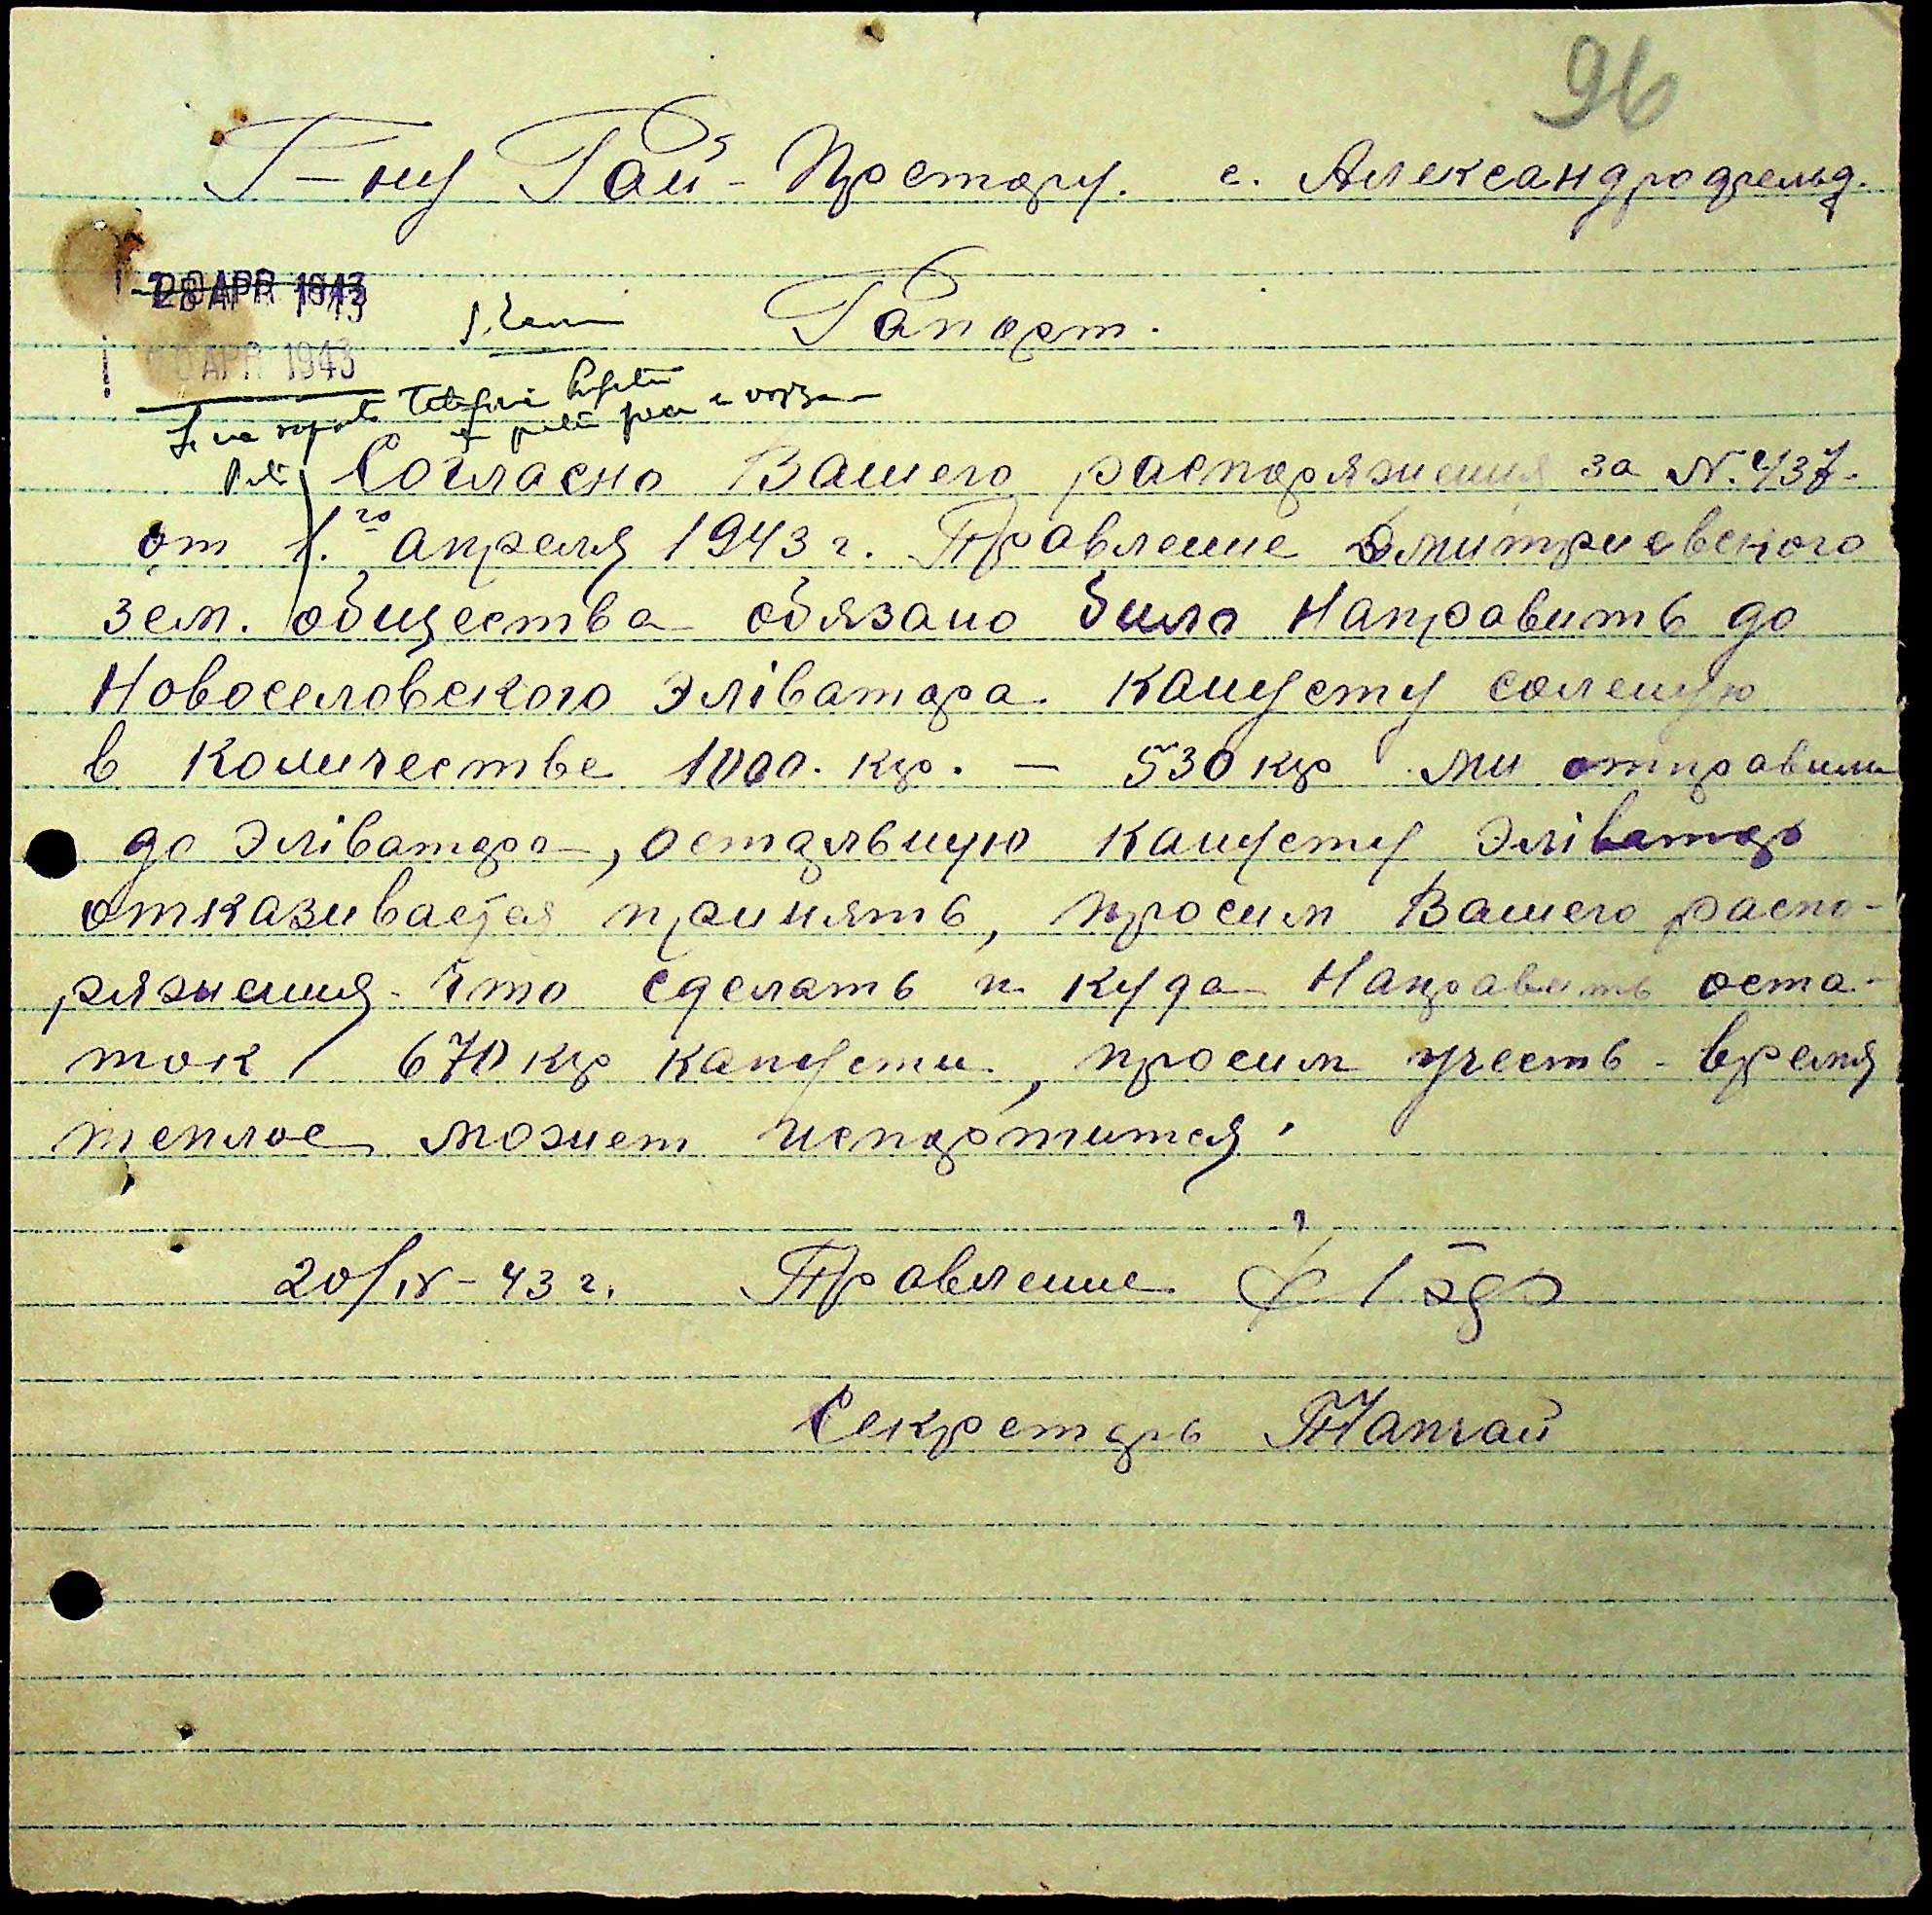 96
Г-ну Рай-Претору. с. Александрофельд.
28 APR 1943
20 APR 1943
Рапорт.
Согласно Вашего распоряжения за N. 437.
от 1.го апреля 1943 г. Правление Дмитриевского
зем. общества обязано било направить до
Новоселовского Элiватора капусту соленую
в количестве 1000. кгр. — 530 кгр ми отправили
до Элiватора, остальную капусту Элiватор
отказивается принять, просим Вашего распо-
ряжения что сделать и куда направить оста-
ток 670 кгр капусти, просим учесть - время
теплое может испортится.
20/IV-43 г. Правление
Секретарь